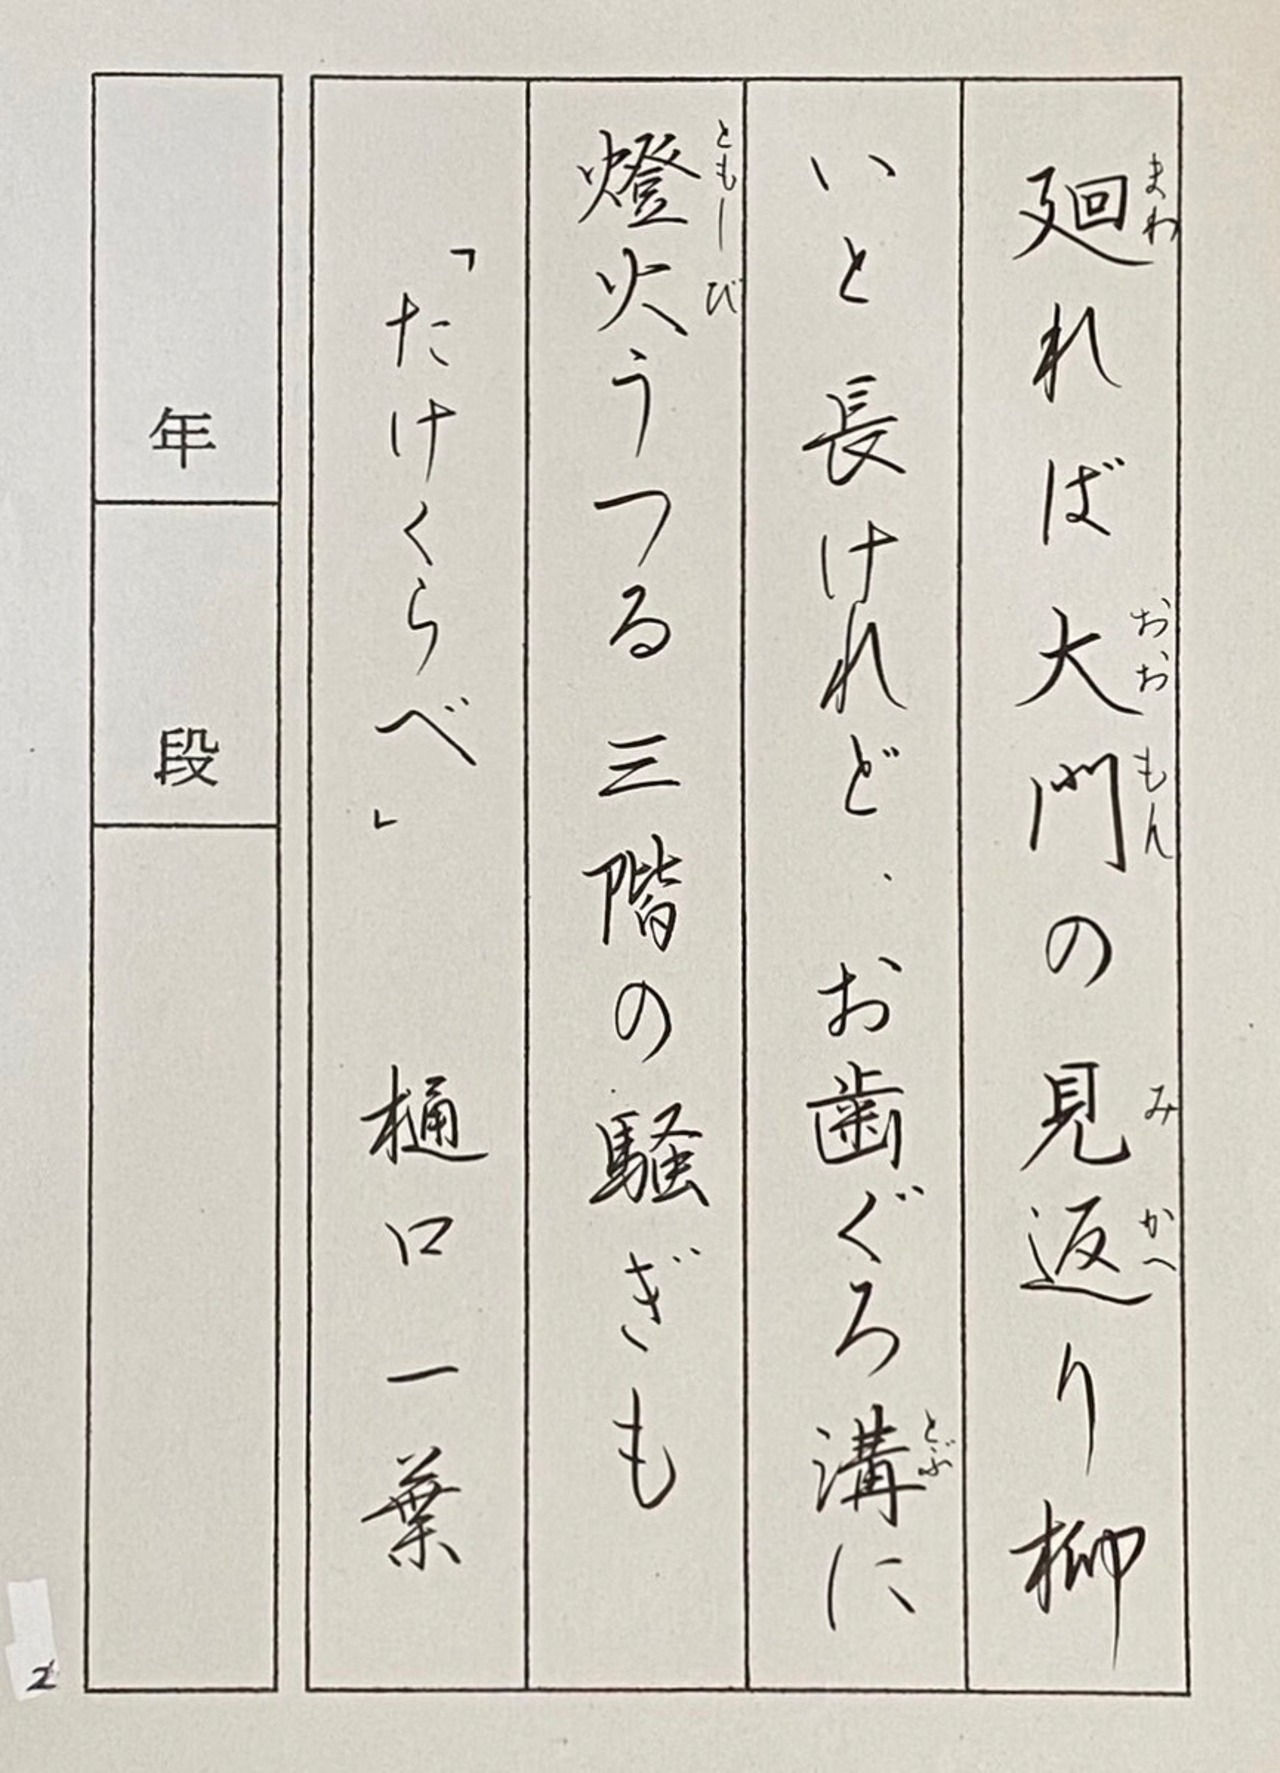 廻れば大門の見返り柳
まわ
おお
もん
み
かへ
いと長けれど、お歯ぐろ溝に
どぶ
燈火うつる三階の騒ぎも
ともしび
「たけくらべ」 樋口一葉
年
段
2